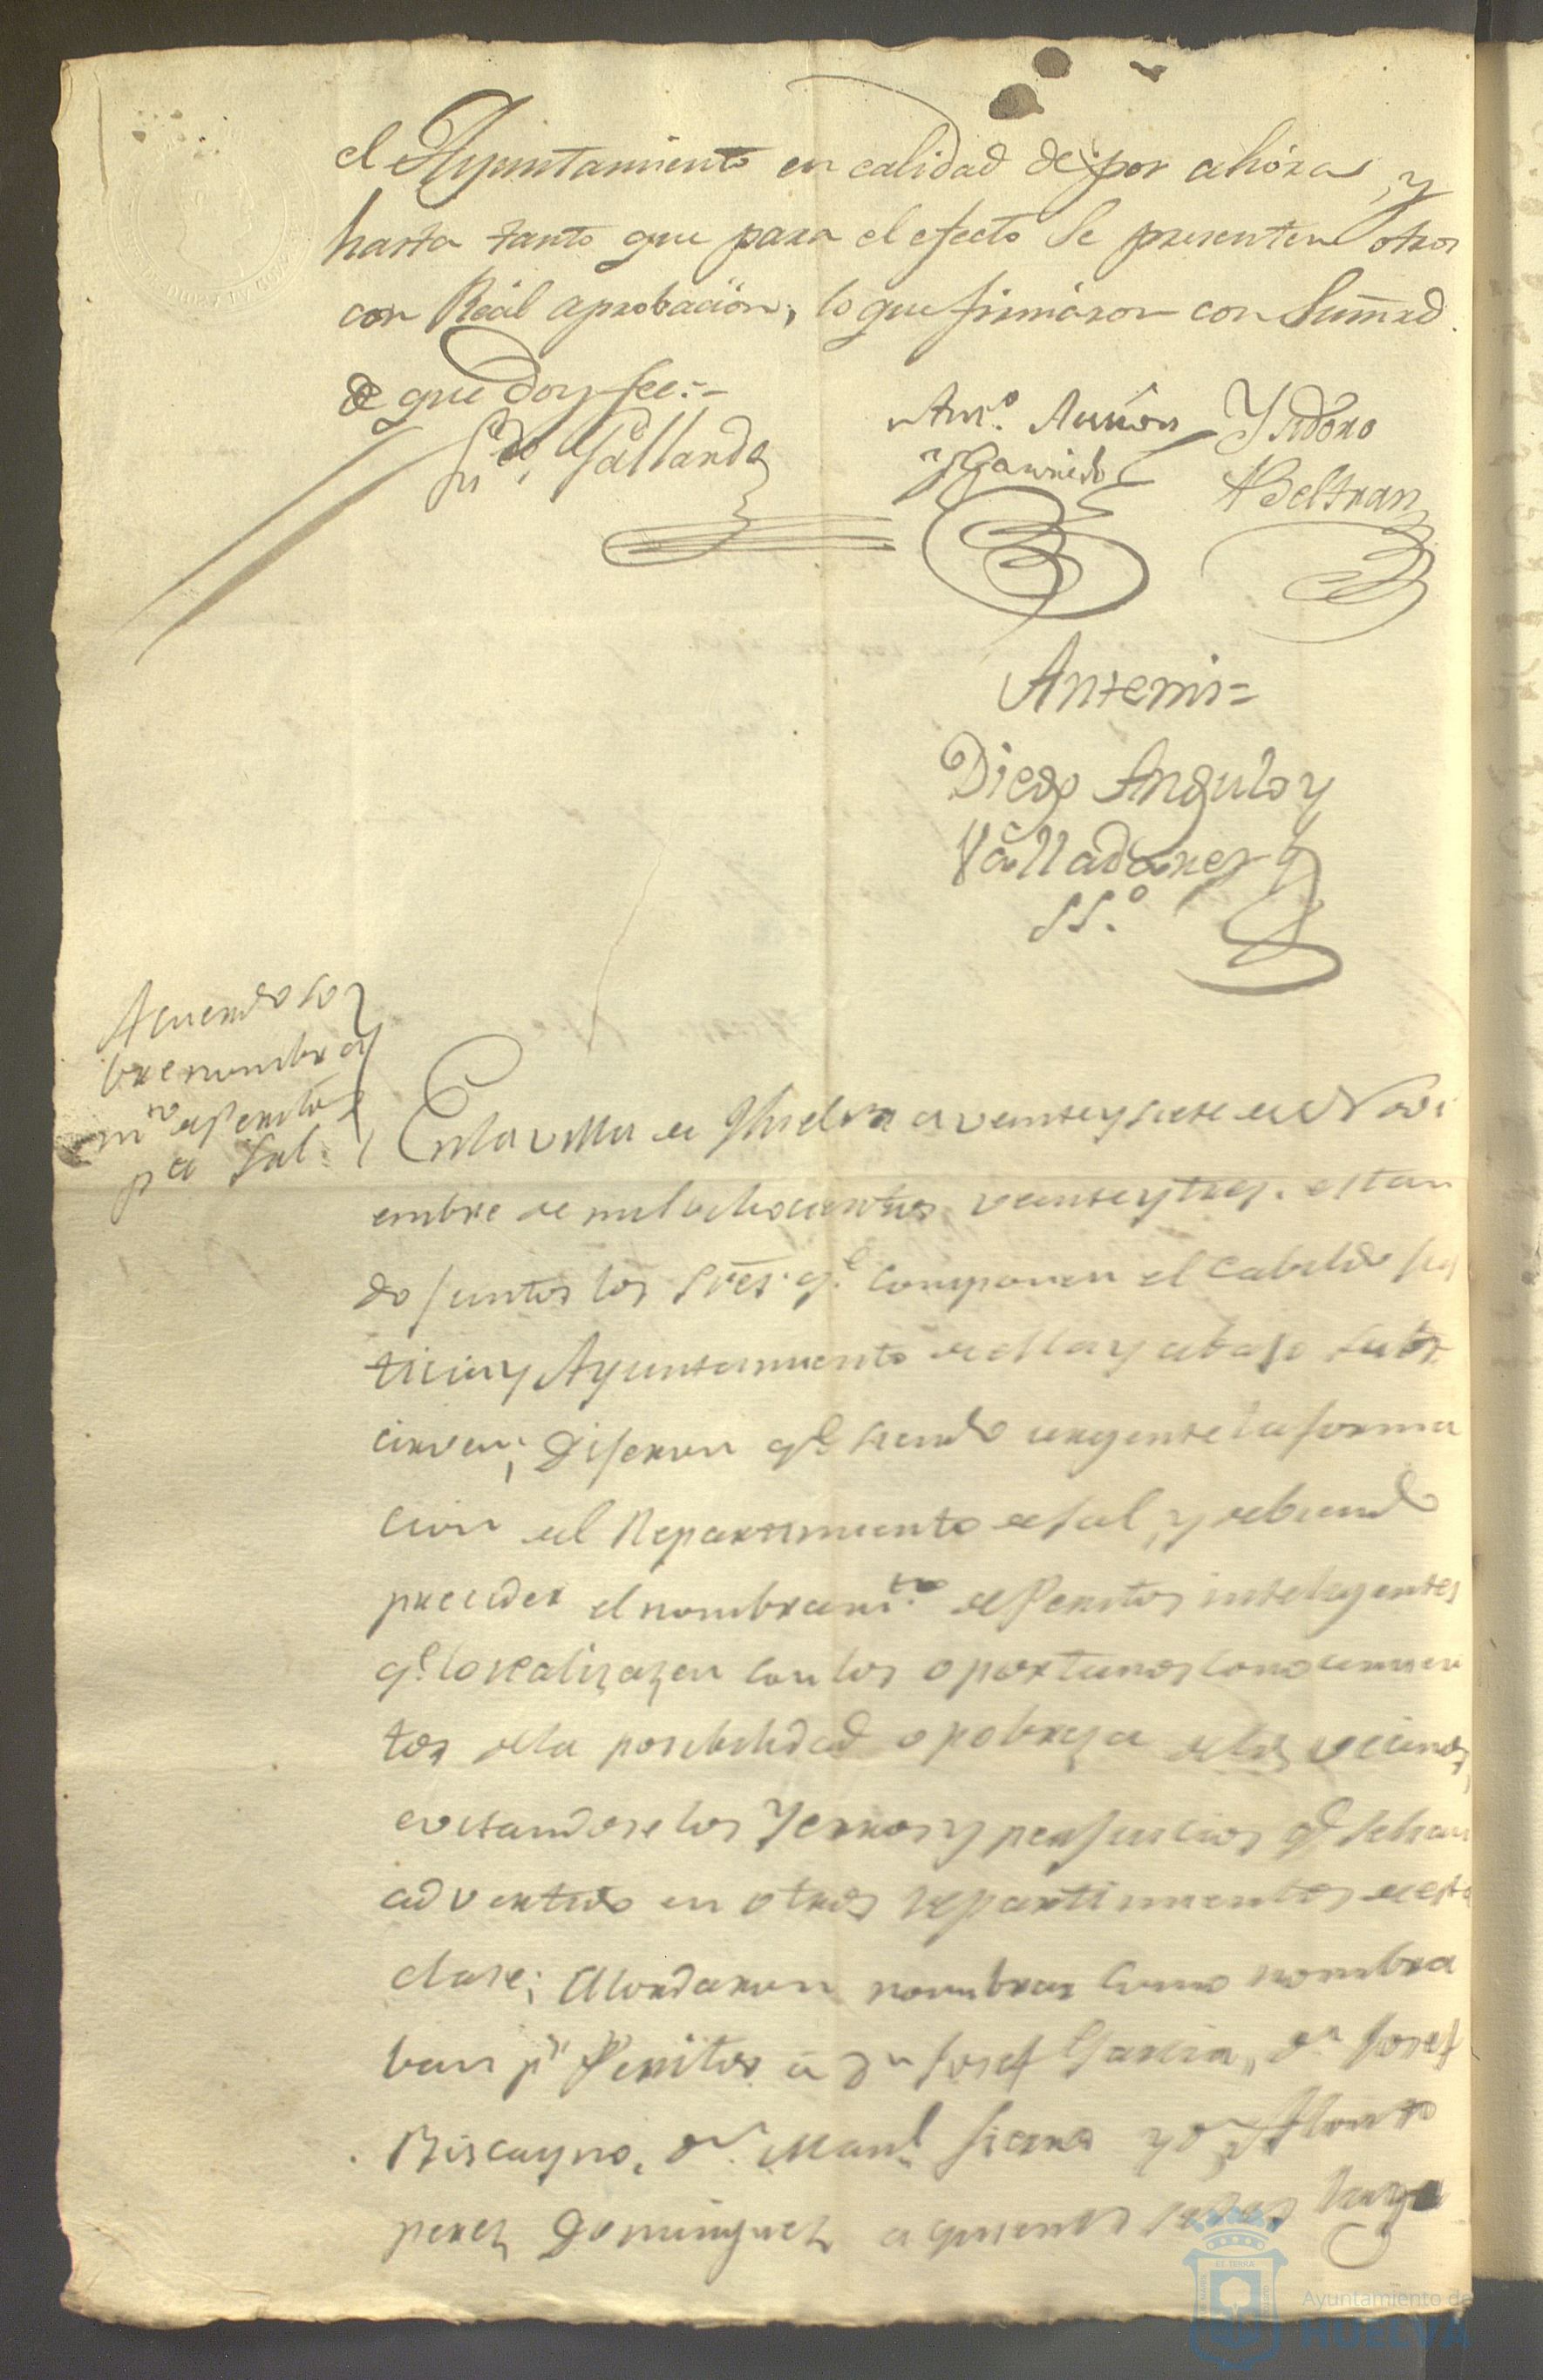 el Ayuntamiento en calidad de por ahóra, y
hasta tanto que para el efecto se presenten otros
con Reál aprobación, lo que firmáron con Sumrd.
de que doy fee:-
Gallardo
Anto. Auñon
y Garrido
Ysidoro
Beltran
Antemi=
Diego Angulo y
Valladares
SSº
Acuerdo so
bre nombra
mto de Peritos
pa Sal.
En la villa de Huelva a veinte y siete de Novi
embre de mil ochocientos veinte y tres. estan
do juntos los Sres. qe. componen el Cabildo Jus
ticia y Ayuntamiento de ella y abajo subs
criven; Dijeron qe. siendo urgente la forma
cion del Repartimiento de sal, y debiendo
preceder el nombramto. de Peritos inteligentes
qe. lo realizazen con los oportunos conocimien
tos de la posibilidad o pobreza de los vecinos,
evitandose los Yerros y perjuicios qe. se han
advertido en otros repartimientos de esta
clase; Acordaron nombrar como nombra
ban pr Peritos a Dn Josef Garcia, Dn Josef
Biscayno, Dn. Manl. Sierra y Dn Alonso
perez Dominguez a quienes se les haga
Ayuntamiento de
HUELVA